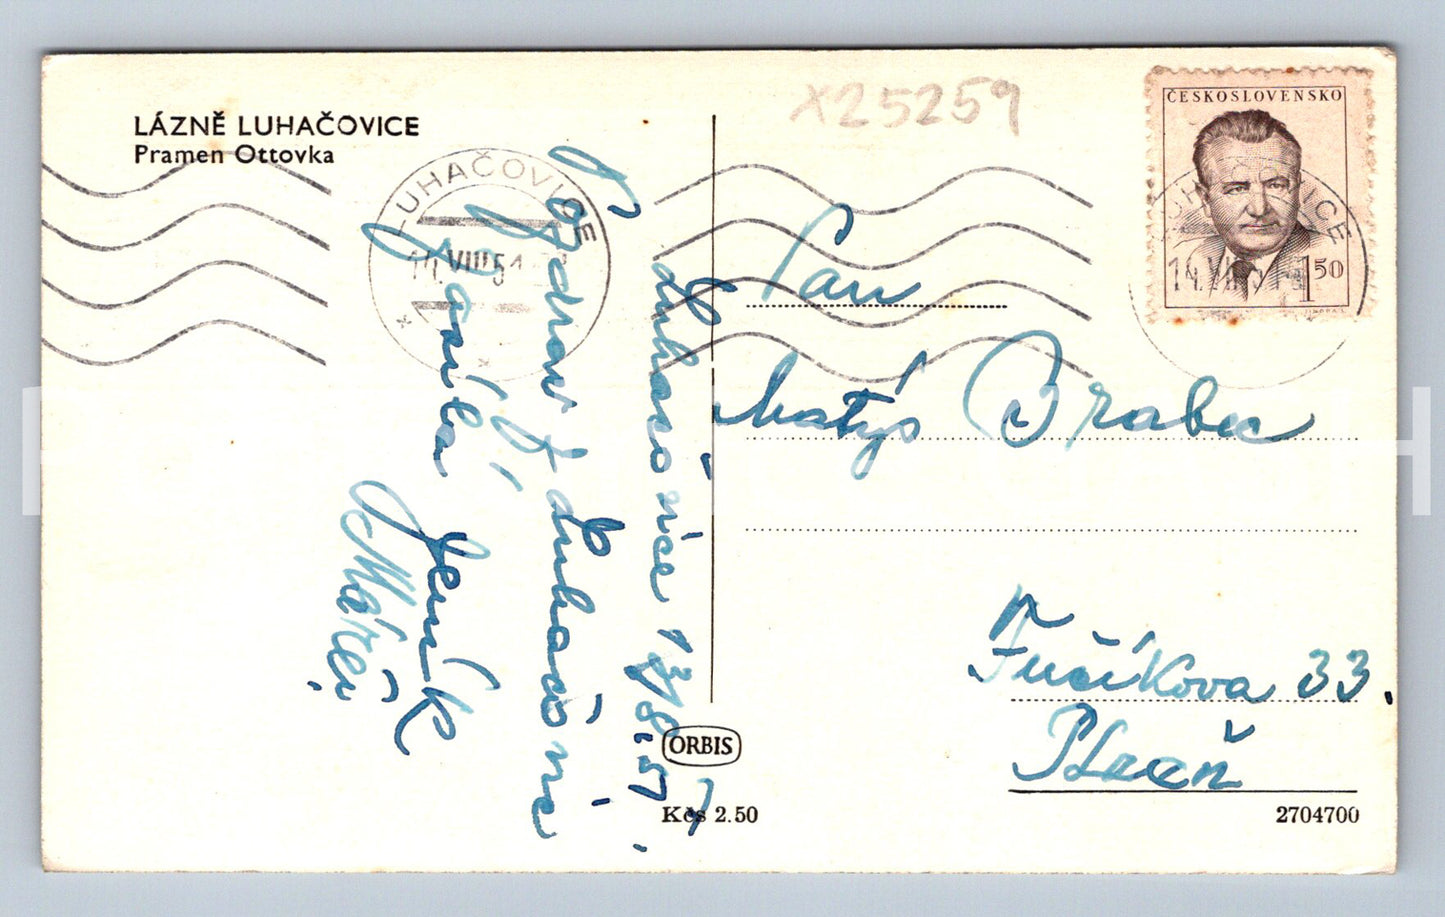 LÁZNĚ LUHAČOVICE
Pramen Ottovka
LUHAČOVICE
14.VIII 51
x25259
ČESKOSLOVENSKO
1 50
Luhačovice 13/8. 51.
Pozdrav z Luhačovic
posílá Jeník
Pan
Matýs Brabec
Fučíkova 33.
Plzeň
ORBIS
Kčs 2.50
2704700